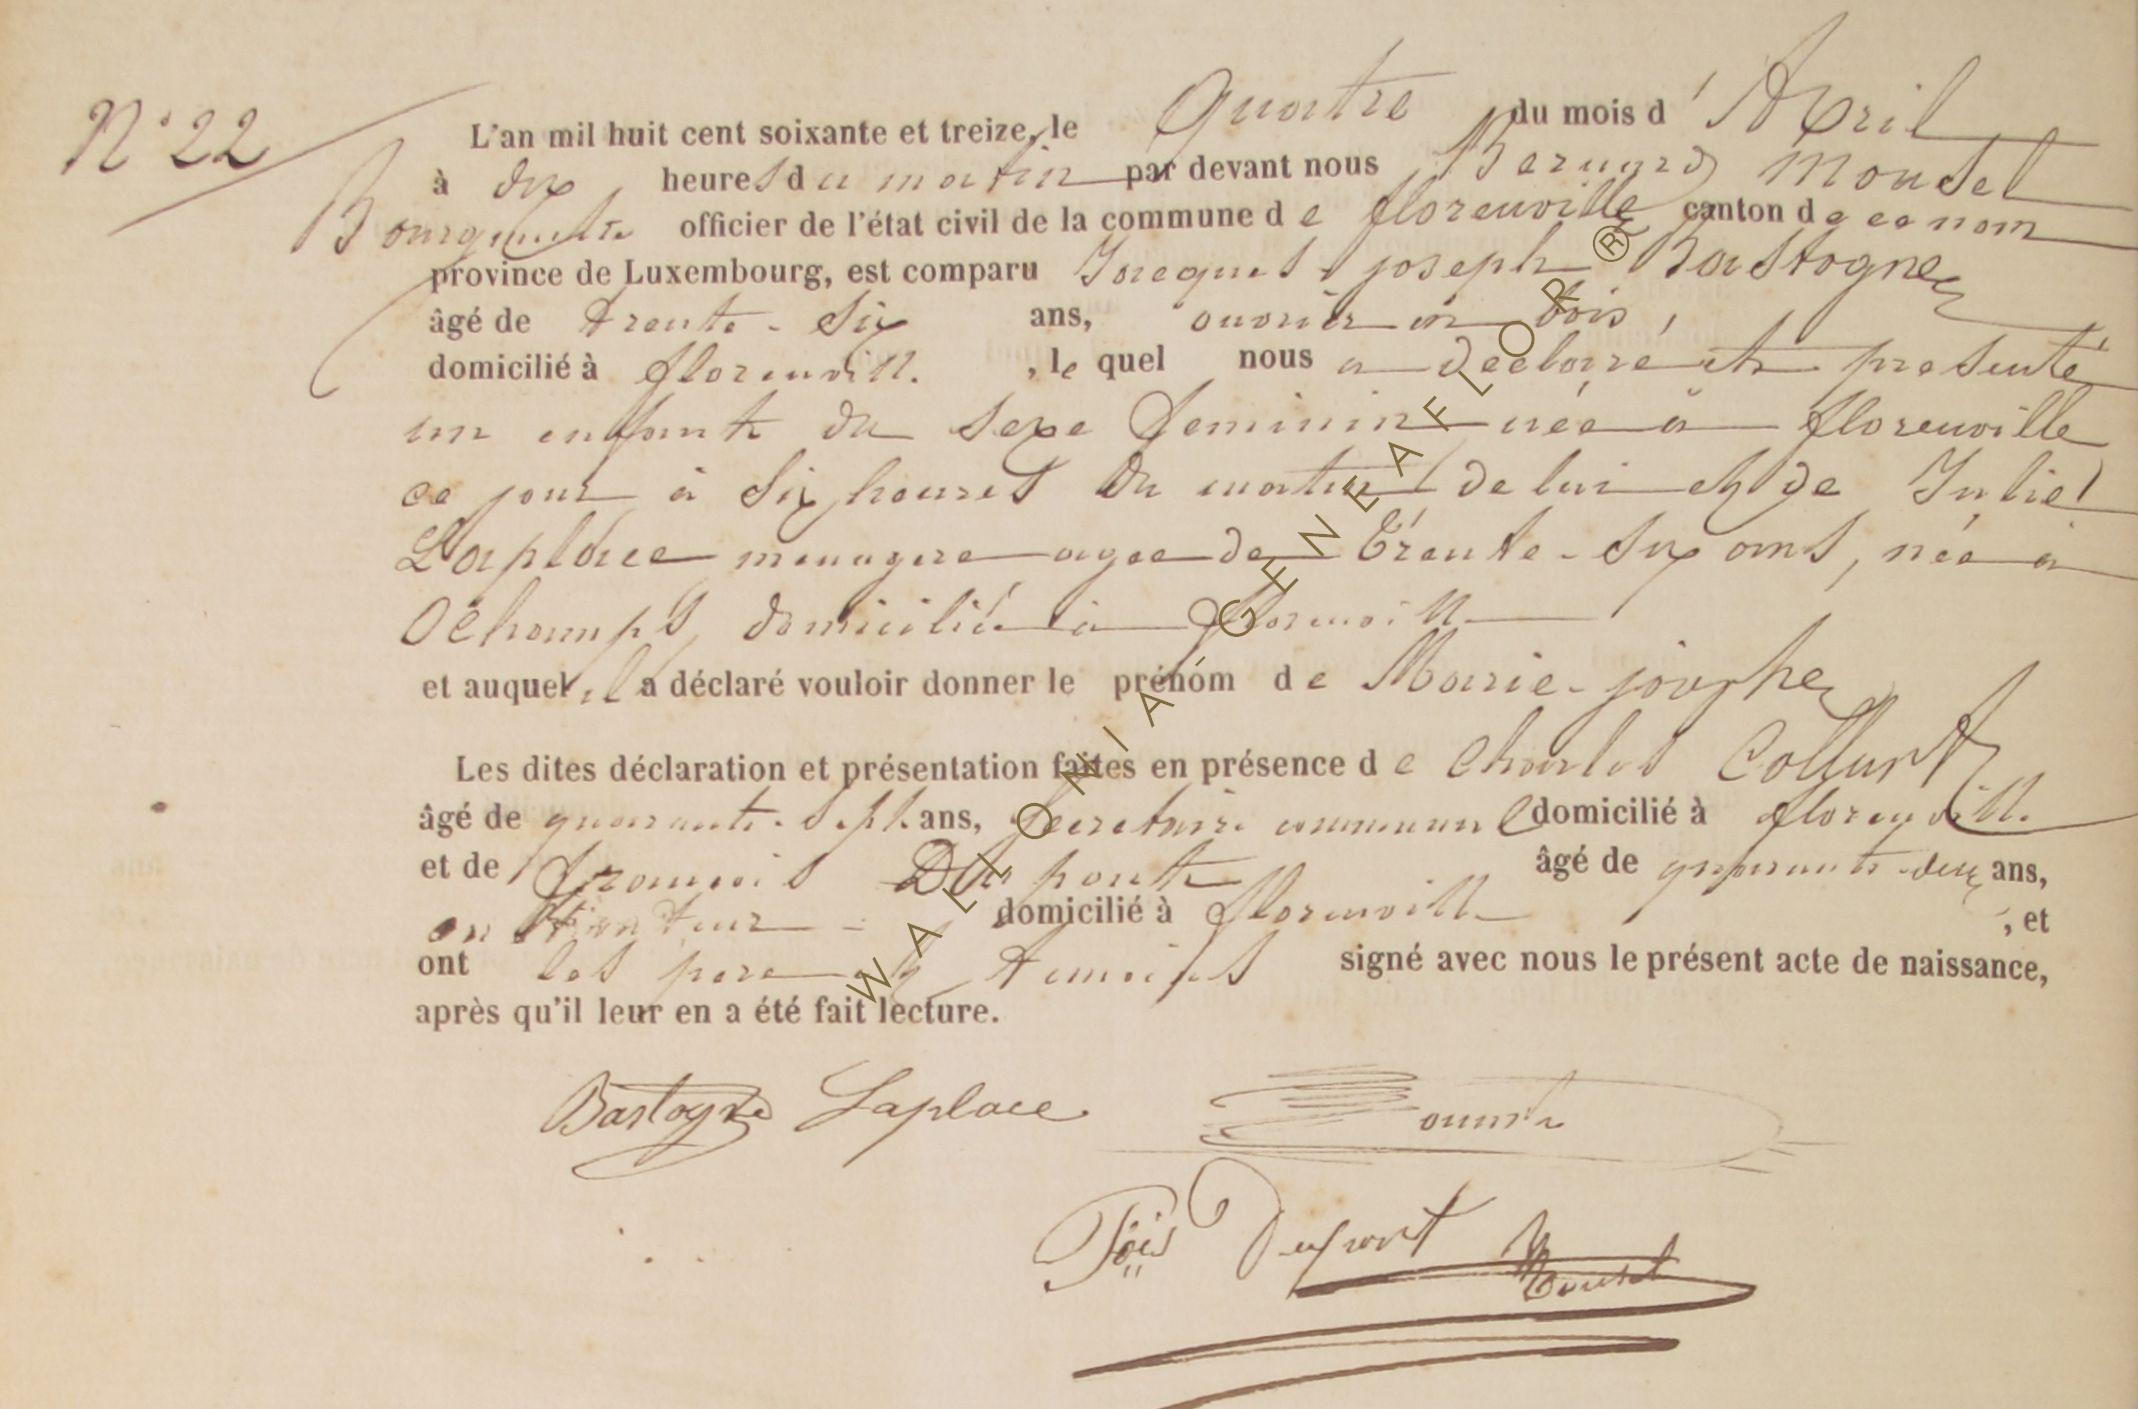 N° 22
L'an mil huit cent soixante et treize, le quatre du mois d'Avril
à dix heures du matin par devant nous Bernard Mousel
Bourgmestre officier de l'état civil de la commune de florenville canton de ce nom
province de Luxembourg, est comparu Jacques joseph Bastogne
âgé de trente-six ans, ouvrier en bois,
domicilié à florenville, le quel nous a déclaré et présenté
un enfant du sexe feminin née à florenville
ce jour à six heures du matin de lui et de Julie
Laplace menagere agee de trente-six ans, née à
Ochamps, domiciliée à florenville
et auquel il a déclaré vouloir donner le prénom de Marie-josephe
Les dites déclaration et présentation faites en présence de Charles
âgé de quarante-sept ans, secretaire communal domicilié à florenville
et de françois Dupont âgé de quarante-deux ans,
domicilié à florenville, et
ont les pere et temoins signé avec nous le présent acte de naissance,
après qu'il leur en a été fait lecture.
Bastogne Laplace
Fçois Dupont Mousel
WALLONIA-GENEAFLOR®